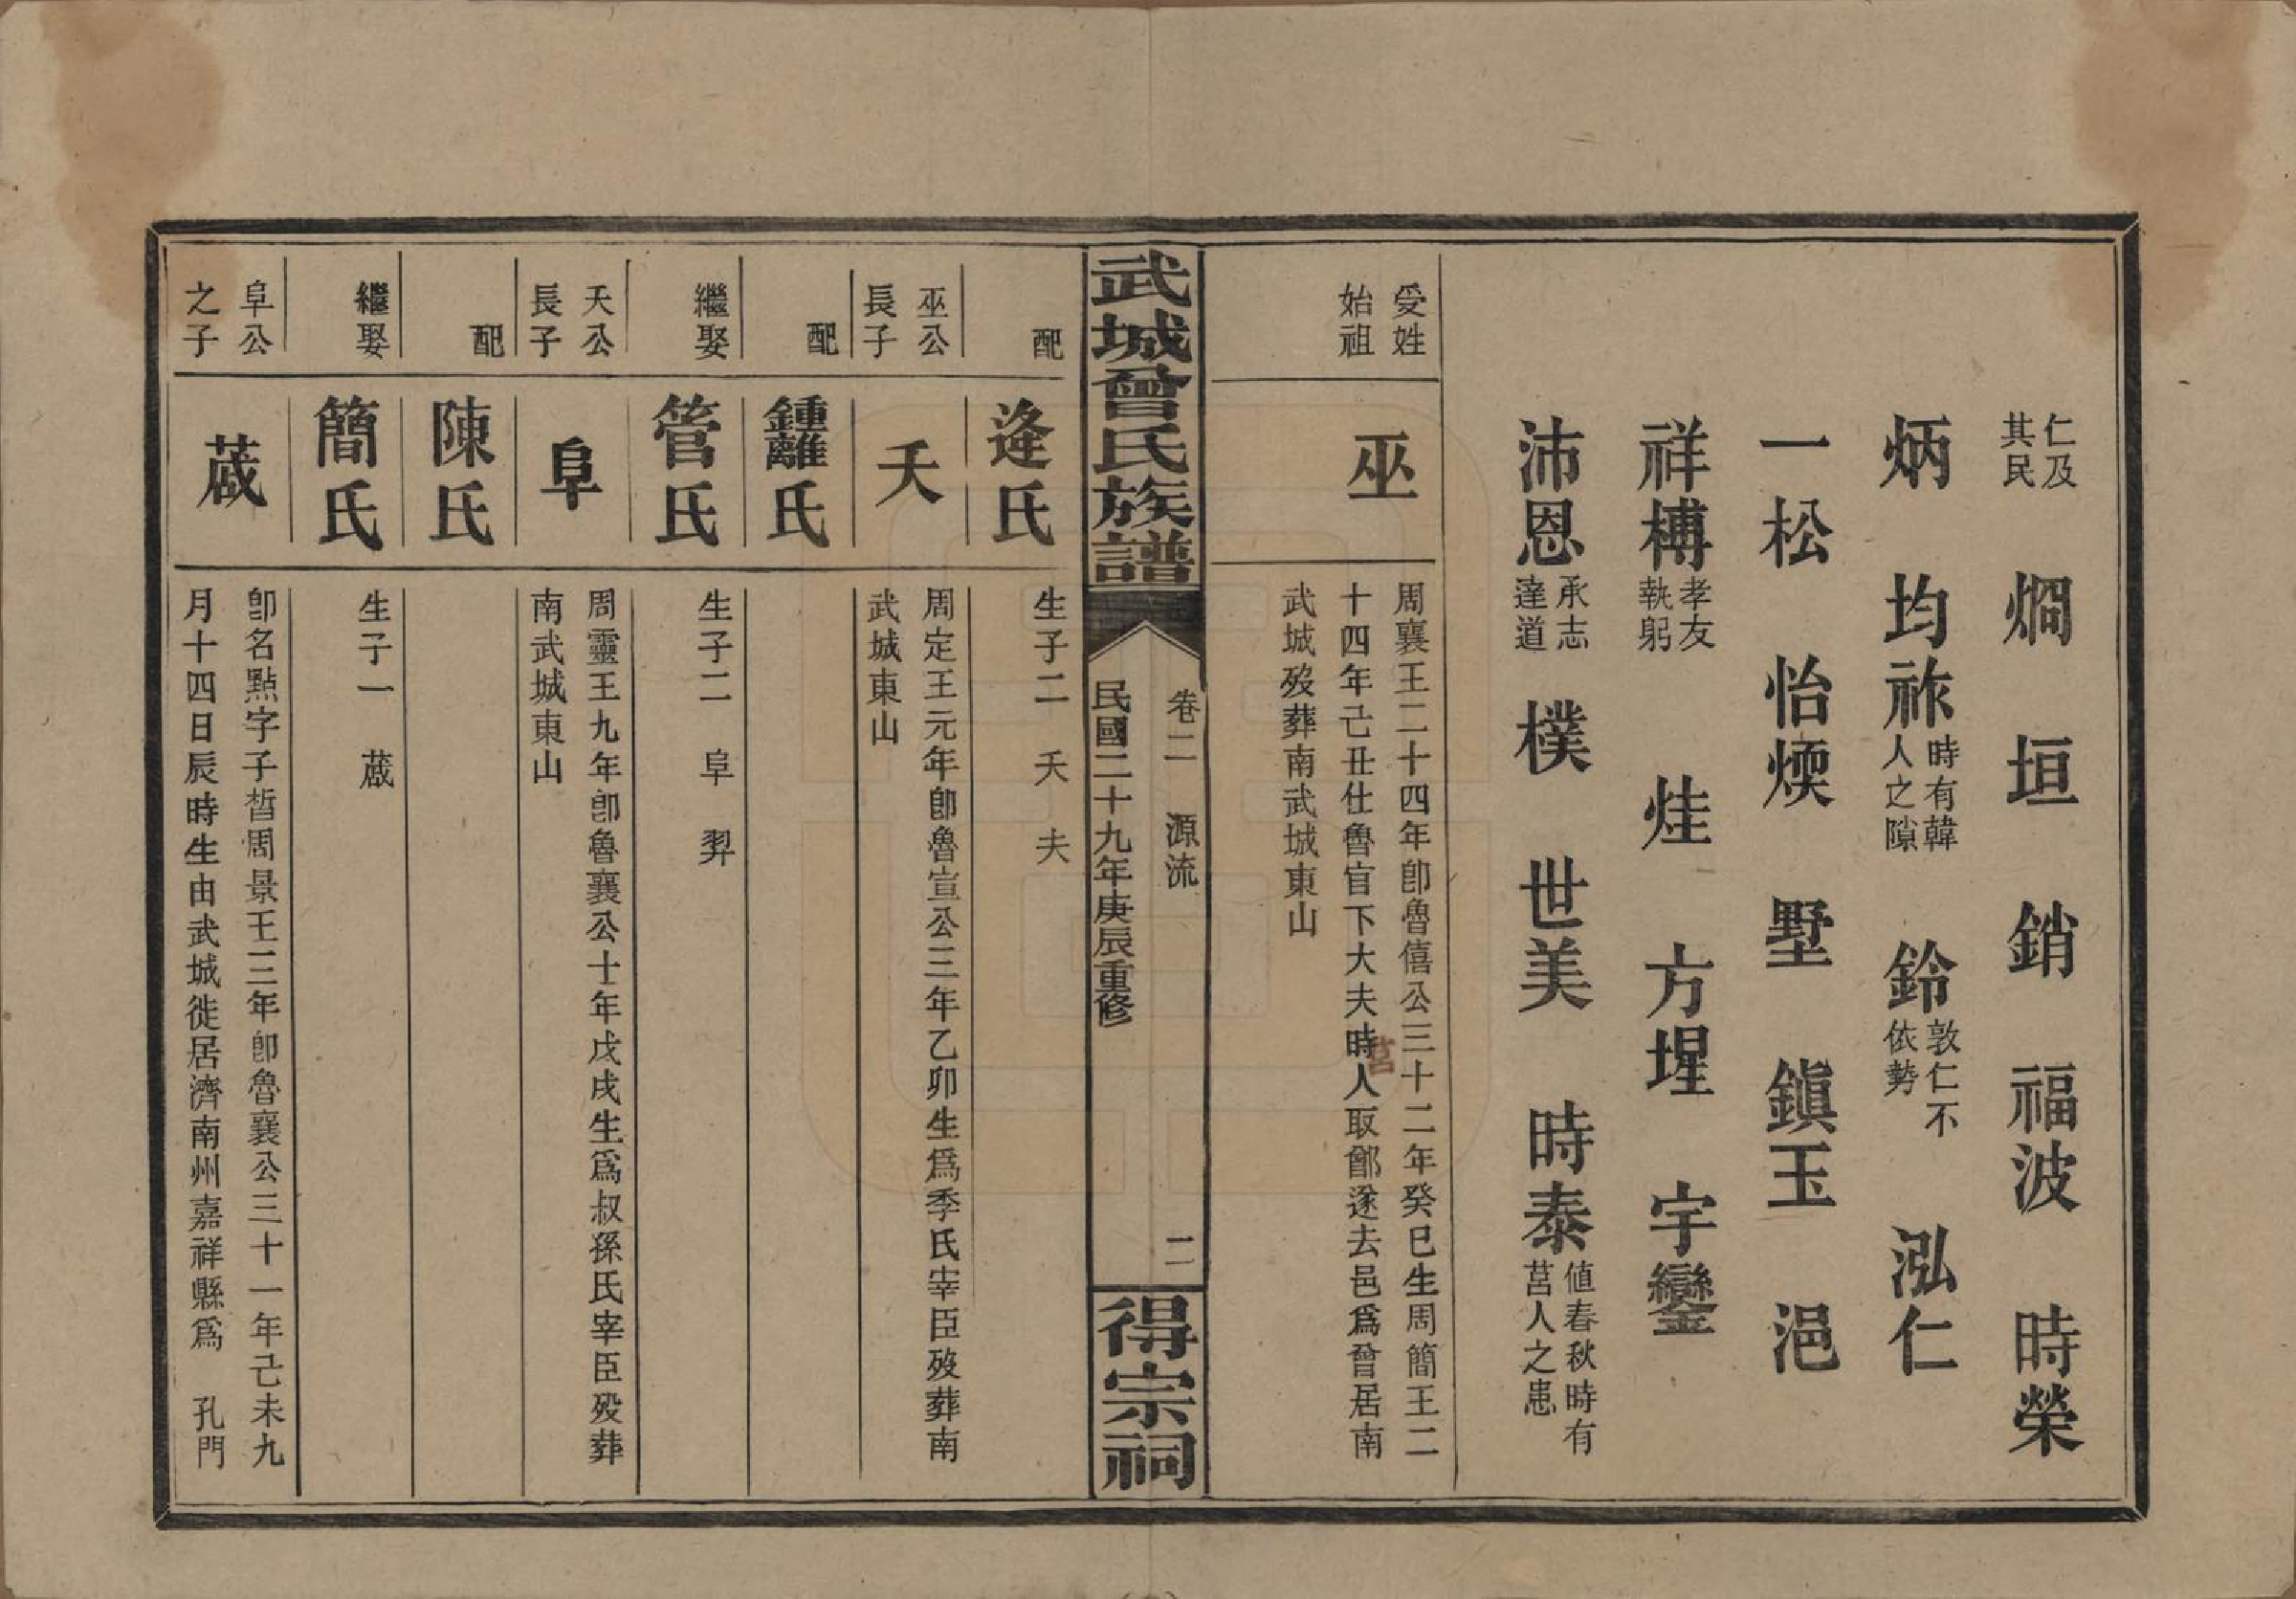 仁及其民 爓 垣 銷 福波 時榮
炳 均祚 時有韓人之隙 鈴 敦仁不依勢 泓仁
一松 怡煗 墅 鎭玉 浥
祥榑 孝友執躬 烓 方埕 宇鑾
沛恩 承志達道 樸 世美 時泰 値春秋時有莒人之患
受姓始祖
巫
周襄王二十四年卽魯僖公三十二年癸巳生周簡王二
十四年己丑仕魯官下大夫時莒人取鄫遂去邑爲曾居南
武城歿葬南武城東山
武城曾氏族譜
卷二 源流
二
民國二十九年庚辰重修
得宗祠
配
逄氏
生子二 夭 夫
巫公長子
夭
周定王元年卽魯宣公三年乙卯生爲季氏宰臣歿葬南
武城東山
配
鍾離氏
繼娶
管氏
生子二 阜 羿
夭公長子
阜
周靈王九年卽魯襄公十年戊戌生爲叔孫氏宰臣歿葬
南武城東山
配
陳氏
繼娶
簡氏
生子一 蒧
阜公之子
蒧
卽名點字子晳周景王三年卽魯襄公三十一年己未九
月十四日辰時生由武城徙居濟南州嘉祥縣爲 孔門